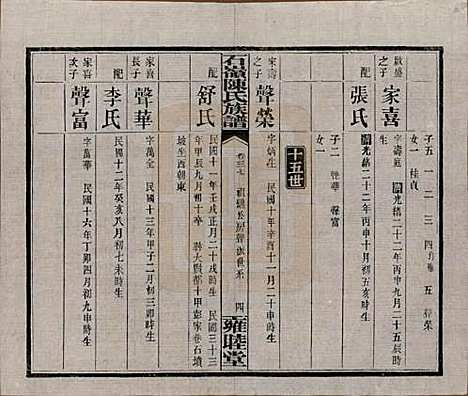 子五 一 二 三 四 五 聲榮
女一 桂貞
之子
家喜
字壽庭 清光緒二十二年丙申九月二十五辰時生
配
張氏
清光緒二十二年丙申十月初五亥時生
子二 聲華 聲富
女一
十五世
家壽之子
聲榮
字炳生 民國十年辛酉十一月二十寅時生
配
舒氏
民國十一年壬戌正月二十戌時生 民國三十三
年甲辰九月初十卒 葬大縣都十甲彭家巷石墳
坡生酉朝東
石嶺陳氏族譜
四
雍睦堂
家喜長子
聲華
字萬全 民國十三年甲子二月初三卯時生
配
李氏
民國十二年癸亥八月初七未時生
家喜次子
聲富
字萬華 民國十六年丁卯四月初九申時生